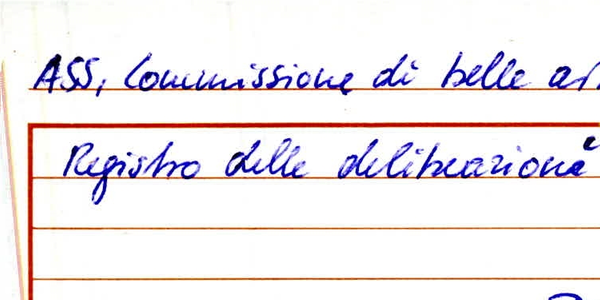 ASS, Commissione di belle ar
Registro delle deliberazioni